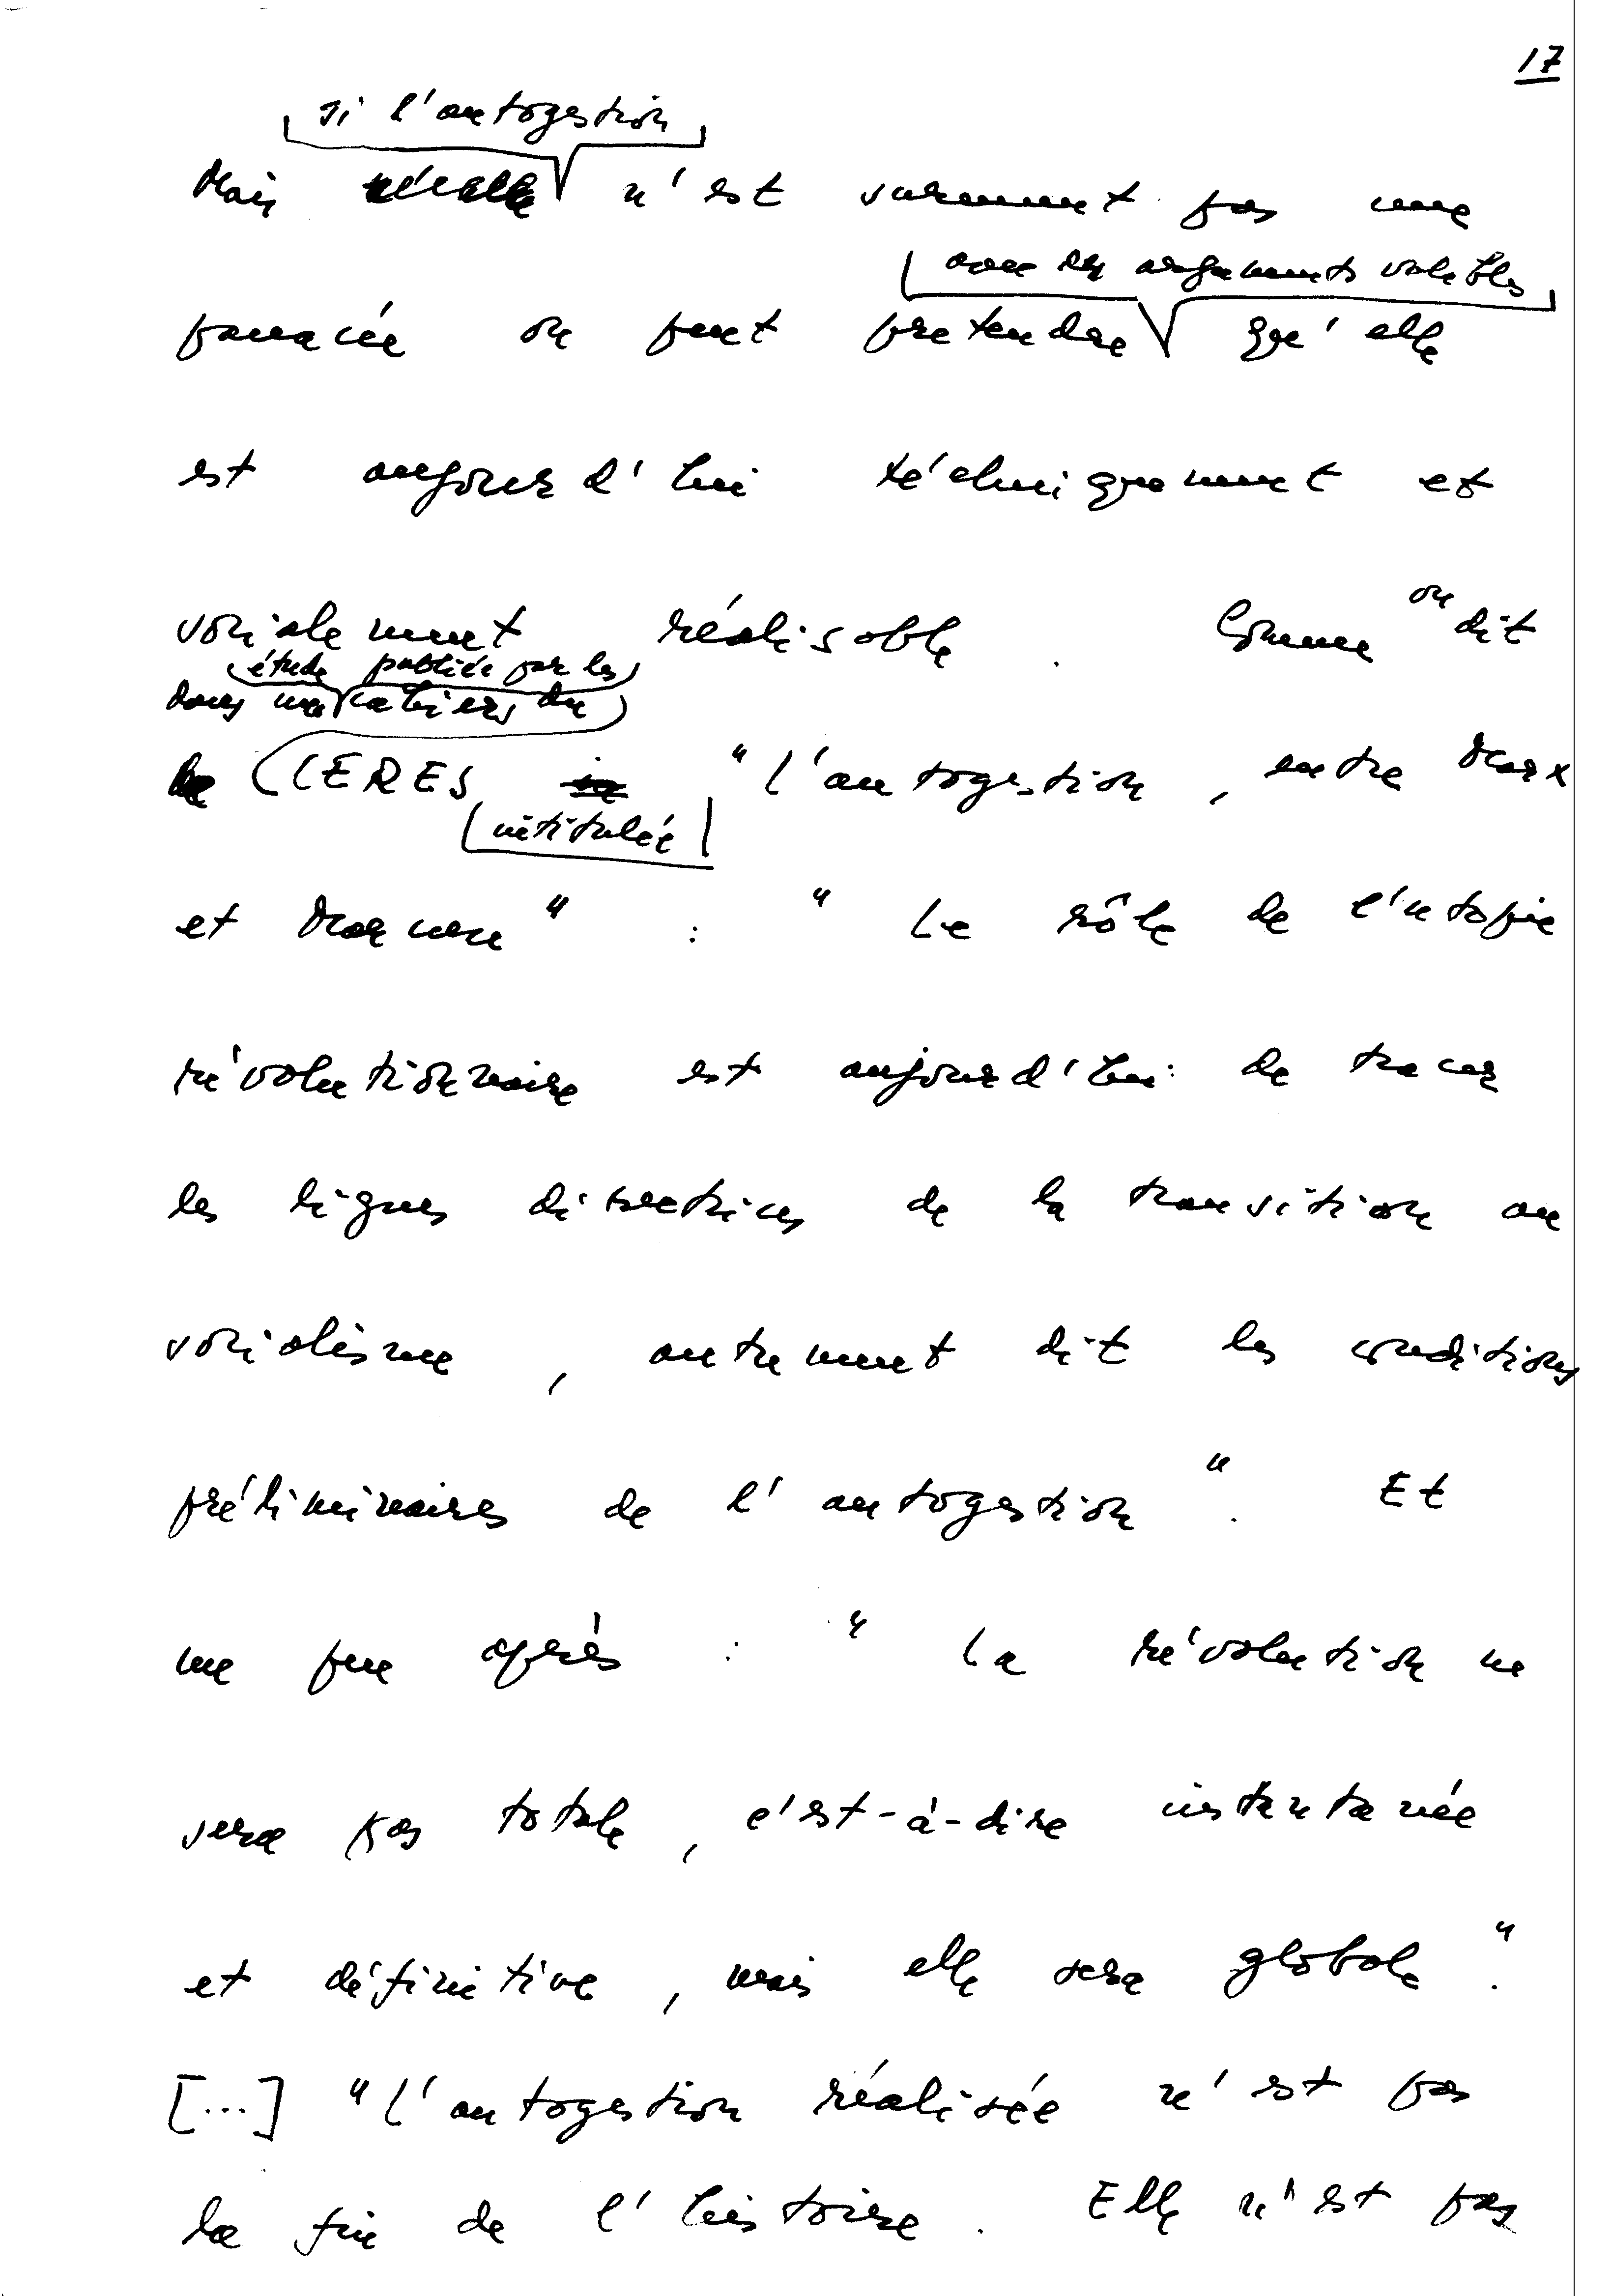 17
si l'autogestion
Mais n'est surement pas une
avec des arguments valables
panacée on peut pretendre qu'elle
est aujourd'hui téchniquement et
socialement réalisable. Comme on dit
étude publiée par les
dans une cahiers du
le CERES in "L'autogestion, entre Marx
intitulée
et Marcuse" : "Le rôle de l'utopie
révolutionnaire est aujourd'hui de tracer
les lignes directrices de la transition au
socialisme, autrement dit les conditions
préliminaires de l'autogestion". Et
un peu après : "La révolution ne
sera pas totale, c'est-à-dire instantanée
et définitive, mais elle sera globale".
[...] "L'autogestion réalisée n'est pas
la fin de l'histoire. Elle n'est pas